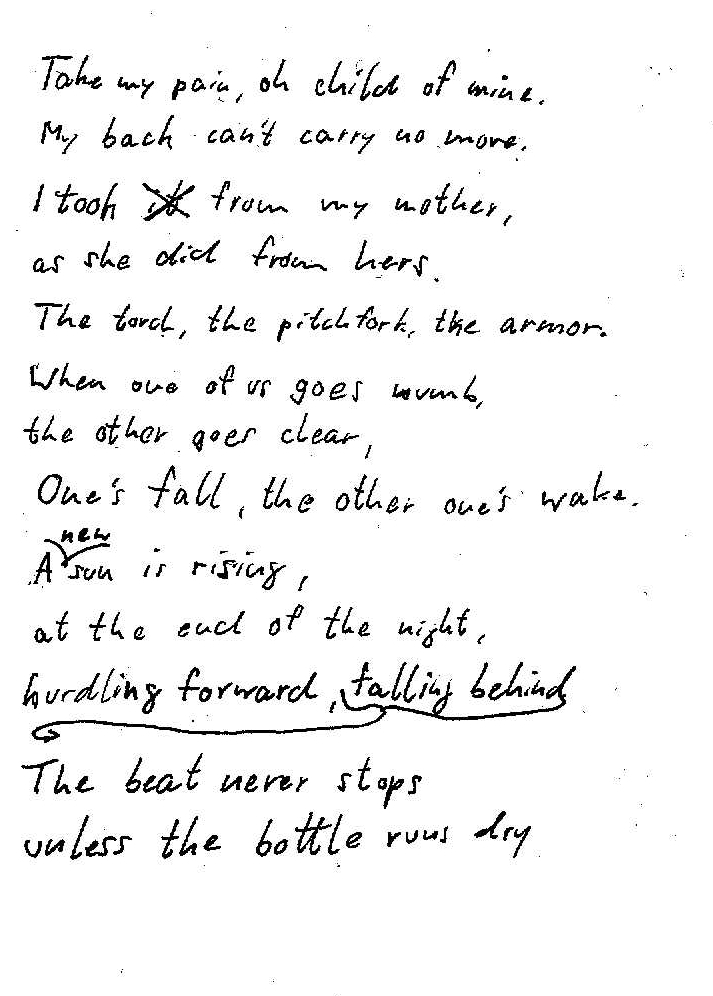 Take my pain, oh child of mine.
My back can't carry no more.
I took it from my mother,
as she did from hers.
The torch, the pitchfork, the armor.
When one of us goes numb,
the other goes clear,
One's fall, the other one's wake.
A new sun is rising,
at the end of the night,
hurdling forward, falling behind
The beat never stops
unless the bottle runs dry